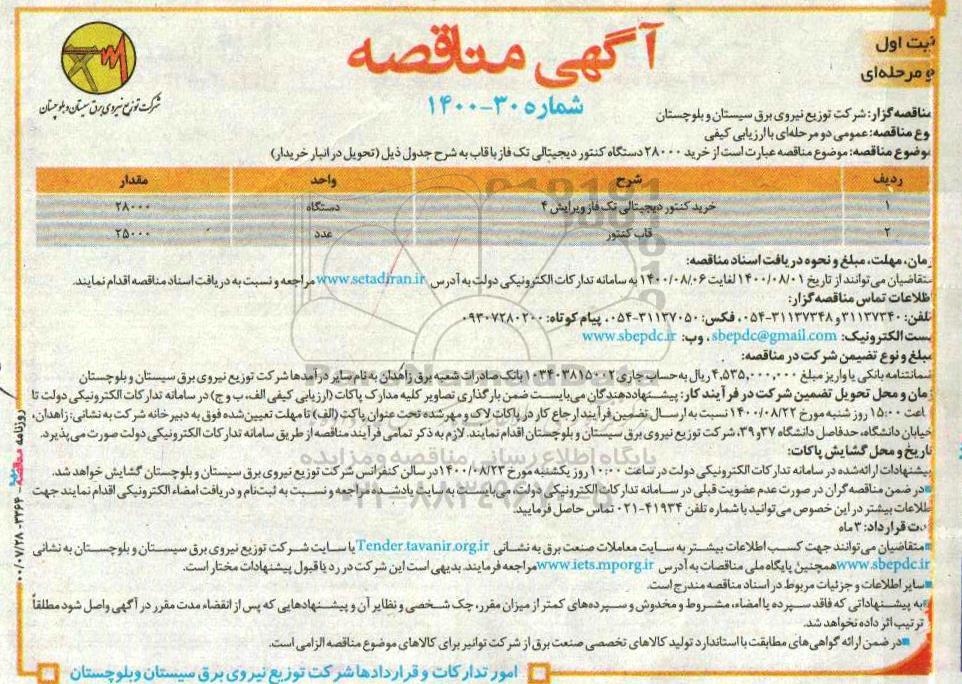 آگهی مناقصه
شماره ۳۰-۱۴۰۰
نوبت اول
دو مرحله‌ای
شرکت توزیع نیروی برق سیستان و بلوچستان
مناقصه‌گزار: شرکت توزیع نیروی برق سیستان و بلوچستان
نوع مناقصه: عمومی دو مرحله‌ای با ارزیابی کیفی
موضوع مناقصه: موضوع مناقصه عبارت است از خرید ۲۸۰۰۰ دستگاه کنتور دیجیتالی تک فاز با قاب به شرح جدول ذیل (تحویل در انبار خریدار)
ردیف شرح واحد مقدار
۱ خرید کنتور دیجیتالی تک فاز ویرایش ۴ دستگاه ۲۸۰۰۰
۲ قاب کنتور عدد ۲۵۰۰۰
زمان، مهلت، مبلغ و نحوه دریافت اسناد مناقصه:
متقاضیان می‌توانند از تاریخ ۱۴۰۰/۰۸/۰۱ لغایت ۱۴۰۰/۰۸/۰۶ به سامانه تدارکات الکترونیکی دولت به آدرس www.setadiran.ir مراجعه و نسبت به دریافت اسناد مناقصه اقدام نمایند.
اطلاعات تماس مناقصه‌گزار:
تلفن: ۳۱۱۳۷۳۴۰ و ۳۱۱۳۷۳۴۸-۰۵۴، فکس: ۳۱۱۳۷۰۵۰-۰۵۴، پیام کوتاه: ۰۹۳۰۷۲۸۰۲۰۰
پست الکترونیک: sbepdc@gmail.com، وب: www.sbepdc.ir
مبلغ و نوع تضمین شرکت در مناقصه:
ضمانتنامه بانکی یا واریز مبلغ ۴,۵۳۵,۰۰۰,۰۰۰ ریال به حساب جاری ۱۰۳۴۰۳۸۱۵۰۰۲ بانک صادرات شعبه برق زاهدان به نام سایر درآمدها شرکت توزیع نیروی برق سیستان و بلوچستان
زمان و محل تحویل تضمین شرکت در فرآیند کار: پیشنهاددهندگان می‌بایست ضمن بارگذاری تصاویر کلیه مدارک پاکات (ارزیابی کیفی الف، ب و ج) در سامانه تدارکات الکترونیکی دولت تا
ساعت ۱۵:۰۰ روز شنبه مورخ ۱۴۰۰/۰۸/۲۲ نسبت به ارسال تضمین فرآیند ارجاع کار در پاکات لاک و مهر شده تحت عنوان پاکت (الف) تا مهلت تعیین شده فوق به دبیرخانه شرکت به نشانی: زاهدان،
خیابان دانشگاه، حدفاصل دانشگاه ۳۷ و ۳۹، شرکت توزیع نیروی برق سیستان و بلوچستان اقدام نمایند. لازم به ذکر تمامی فرآیند مناقصه از طریق سامانه تدارکات الکترونیکی دولت صورت می‌پذیرد.
تاریخ و محل گشایش پاکات:
پیشنهادات ارائه‌شده در سامانه تدارکات الکترونیکی دولت در ساعت ۱۰:۰۰ روز یکشنبه مورخ ۱۴۰۰/۰۸/۲۳ در سالن کنفرانس شرکت توزیع نیروی برق سیستان و بلوچستان گشایش خواهد شد.
در ضمن مناقصه‌گران در صورت عدم عضویت قبلی در سامانه تدارکات الکترونیکی دولت، می‌بایست به سایت یادشده مراجعه و نسبت به ثبت‌نام و دریافت امضاء الکترونیکی اقدام نمایند جهت
اطلاعات بیشتر در این خصوص می‌توانید با شماره تلفن ۴۱۹۳۴-۰۲۱ تماس حاصل فرمایید.
مدت قرارداد: ۳ ماه
متقاضیان می‌توانند جهت کسب اطلاعات بیشتر به سایت معاملات صنعت برق به نشانی Tender.tavanir.org.ir یا سایت شرکت توزیع نیروی برق سیستان و بلوچستان به نشانی
www.sbepdc.ir همچنین پایگاه ملی مناقصات به آدرس www.iets.mporg.ir مراجعه فرمایند. بدیهی است این شرکت در رد یا قبول پیشنهادات مختار است.
سایر اطلاعات و جزئیات مربوط در اسناد مناقصه مندرج است.
به پیشنهاداتی که فاقد سپرده یا امضاء، مشروط و مخدوش و سپرده‌های کمتر از میزان مقرر، چک شخصی و نظایر آن و پیشنهادهایی که پس از انقضاء مدت مقرر در آگهی واصل شود مطلقاً
ترتیب اثر داده نخواهد شد.
در ضمن ارائه گواهی‌های مطابقت با استاندارد تولید کالاهای تخصصی صنعت برق از شرکت توانیر برای کالاهای موضوع مناقصه الزامی است.
امور تدارکات و قراردادها شرکت توزیع نیروی برق سیستان و بلوچستان
روزنامه مناقصه - ۳۳۶۴ - ۰۰/۰۷/۲۸
پایگاه اطلاع رسانی مناقصه و مزایده